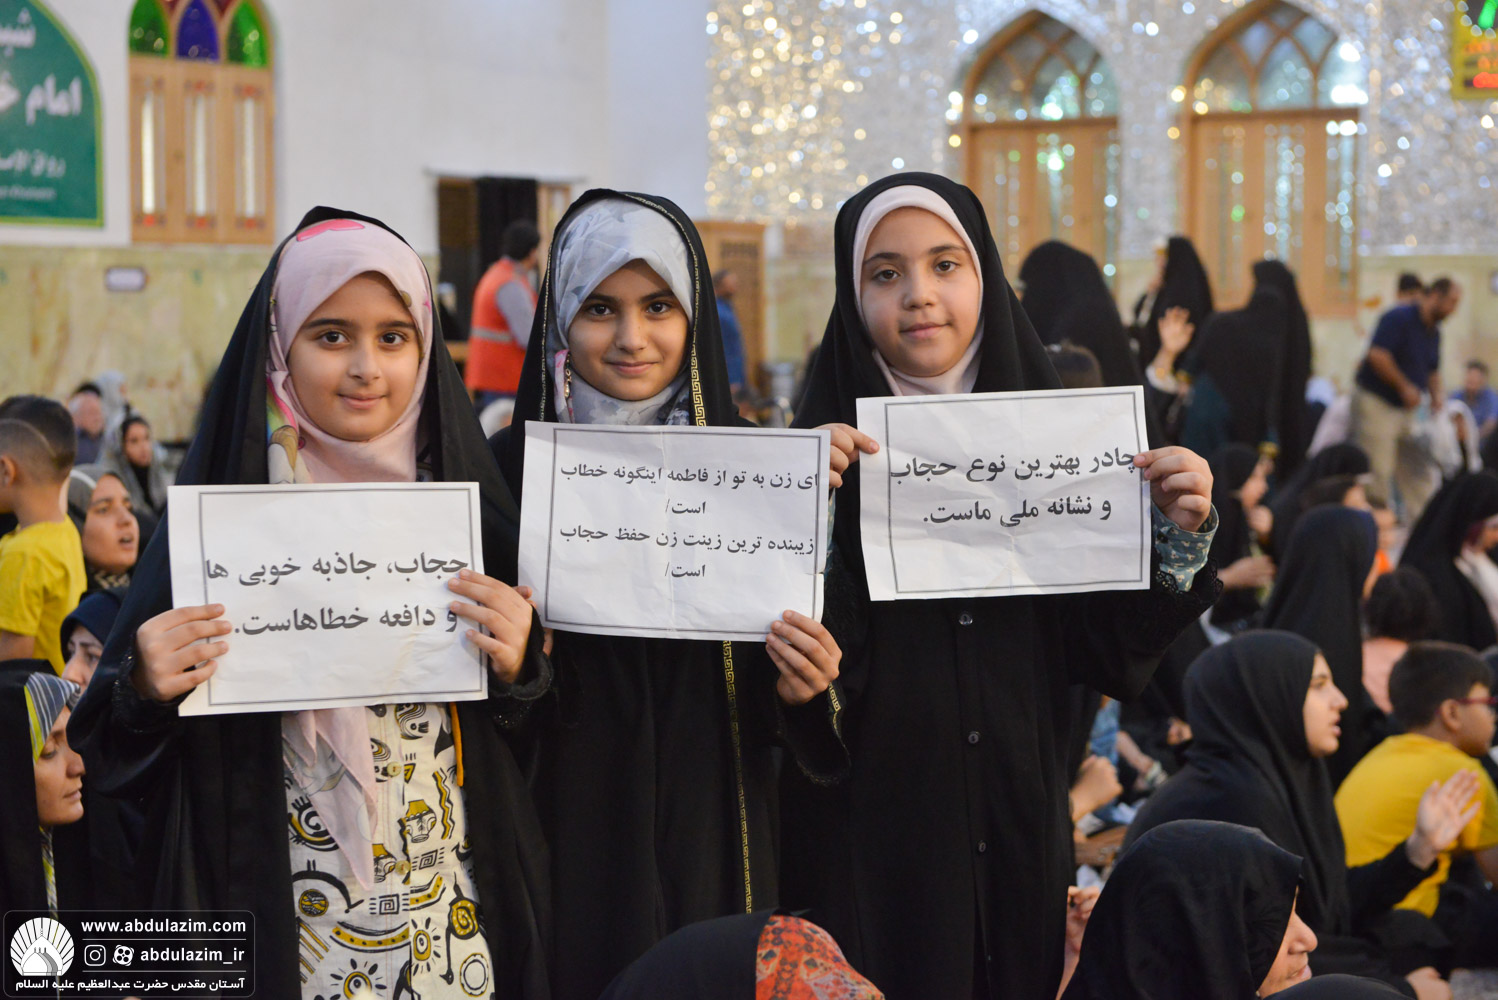 امام
حجاب، جاذبه خوبی ها
و دافعه خطاهاست.
ای زن به تو از فاطمه اینگونه خطاب
است/
زیبنده ترین زینت زن حفظ حجاب
است/
چادر بهترین نوع حجاب
و نشانه ملی ماست.
www.abdulazim.com
abdulazim_ir
آستان مقدس حضرت عبدالعظیم علیه السلام